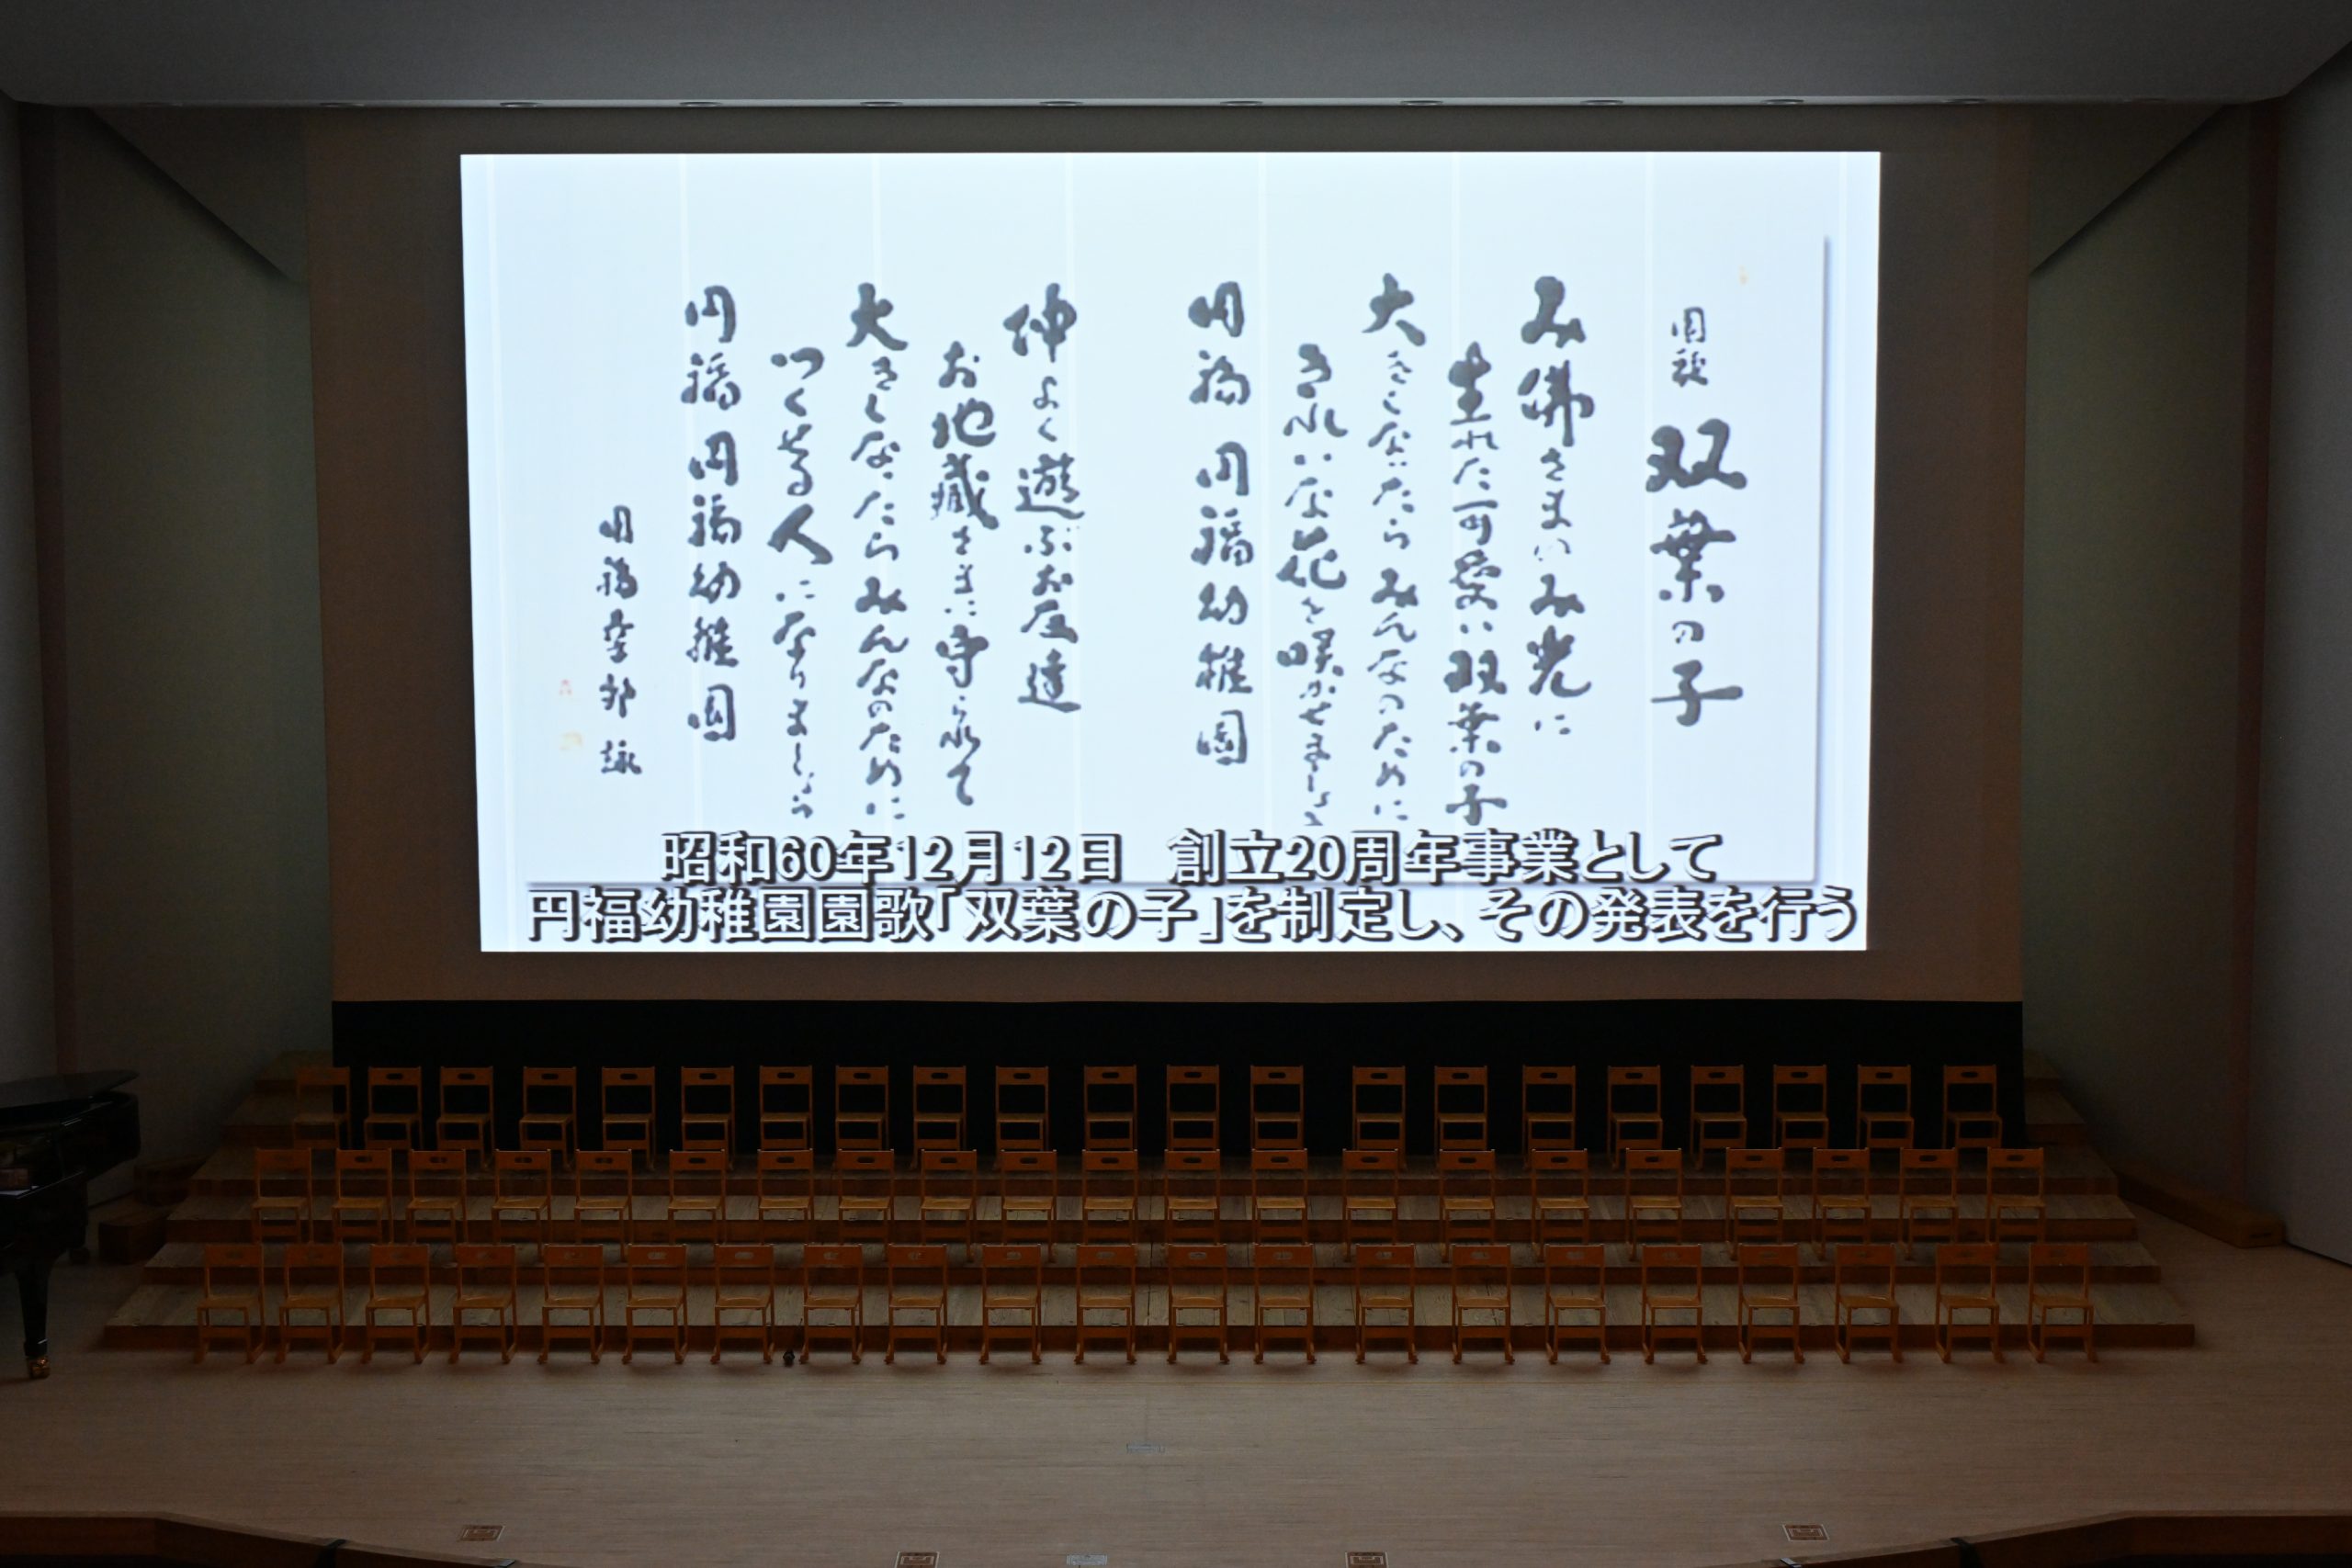 園歌 双葉の子
み佛さまのみ光に
生れた可愛い双葉の子
大きくなったらみんなのために
きれいな花を咲かせましょう
円福円福幼稚園
仲よく遊ぶお友達
お地蔵さまに守られて
大きくなったらみんなのために
つくせる人になりましょう
円福円福幼稚園
円福 邦 詠
昭和60年12月12日 創立20周年事業として
円福幼稚園園歌「双葉の子」を制定し、その発表を行う